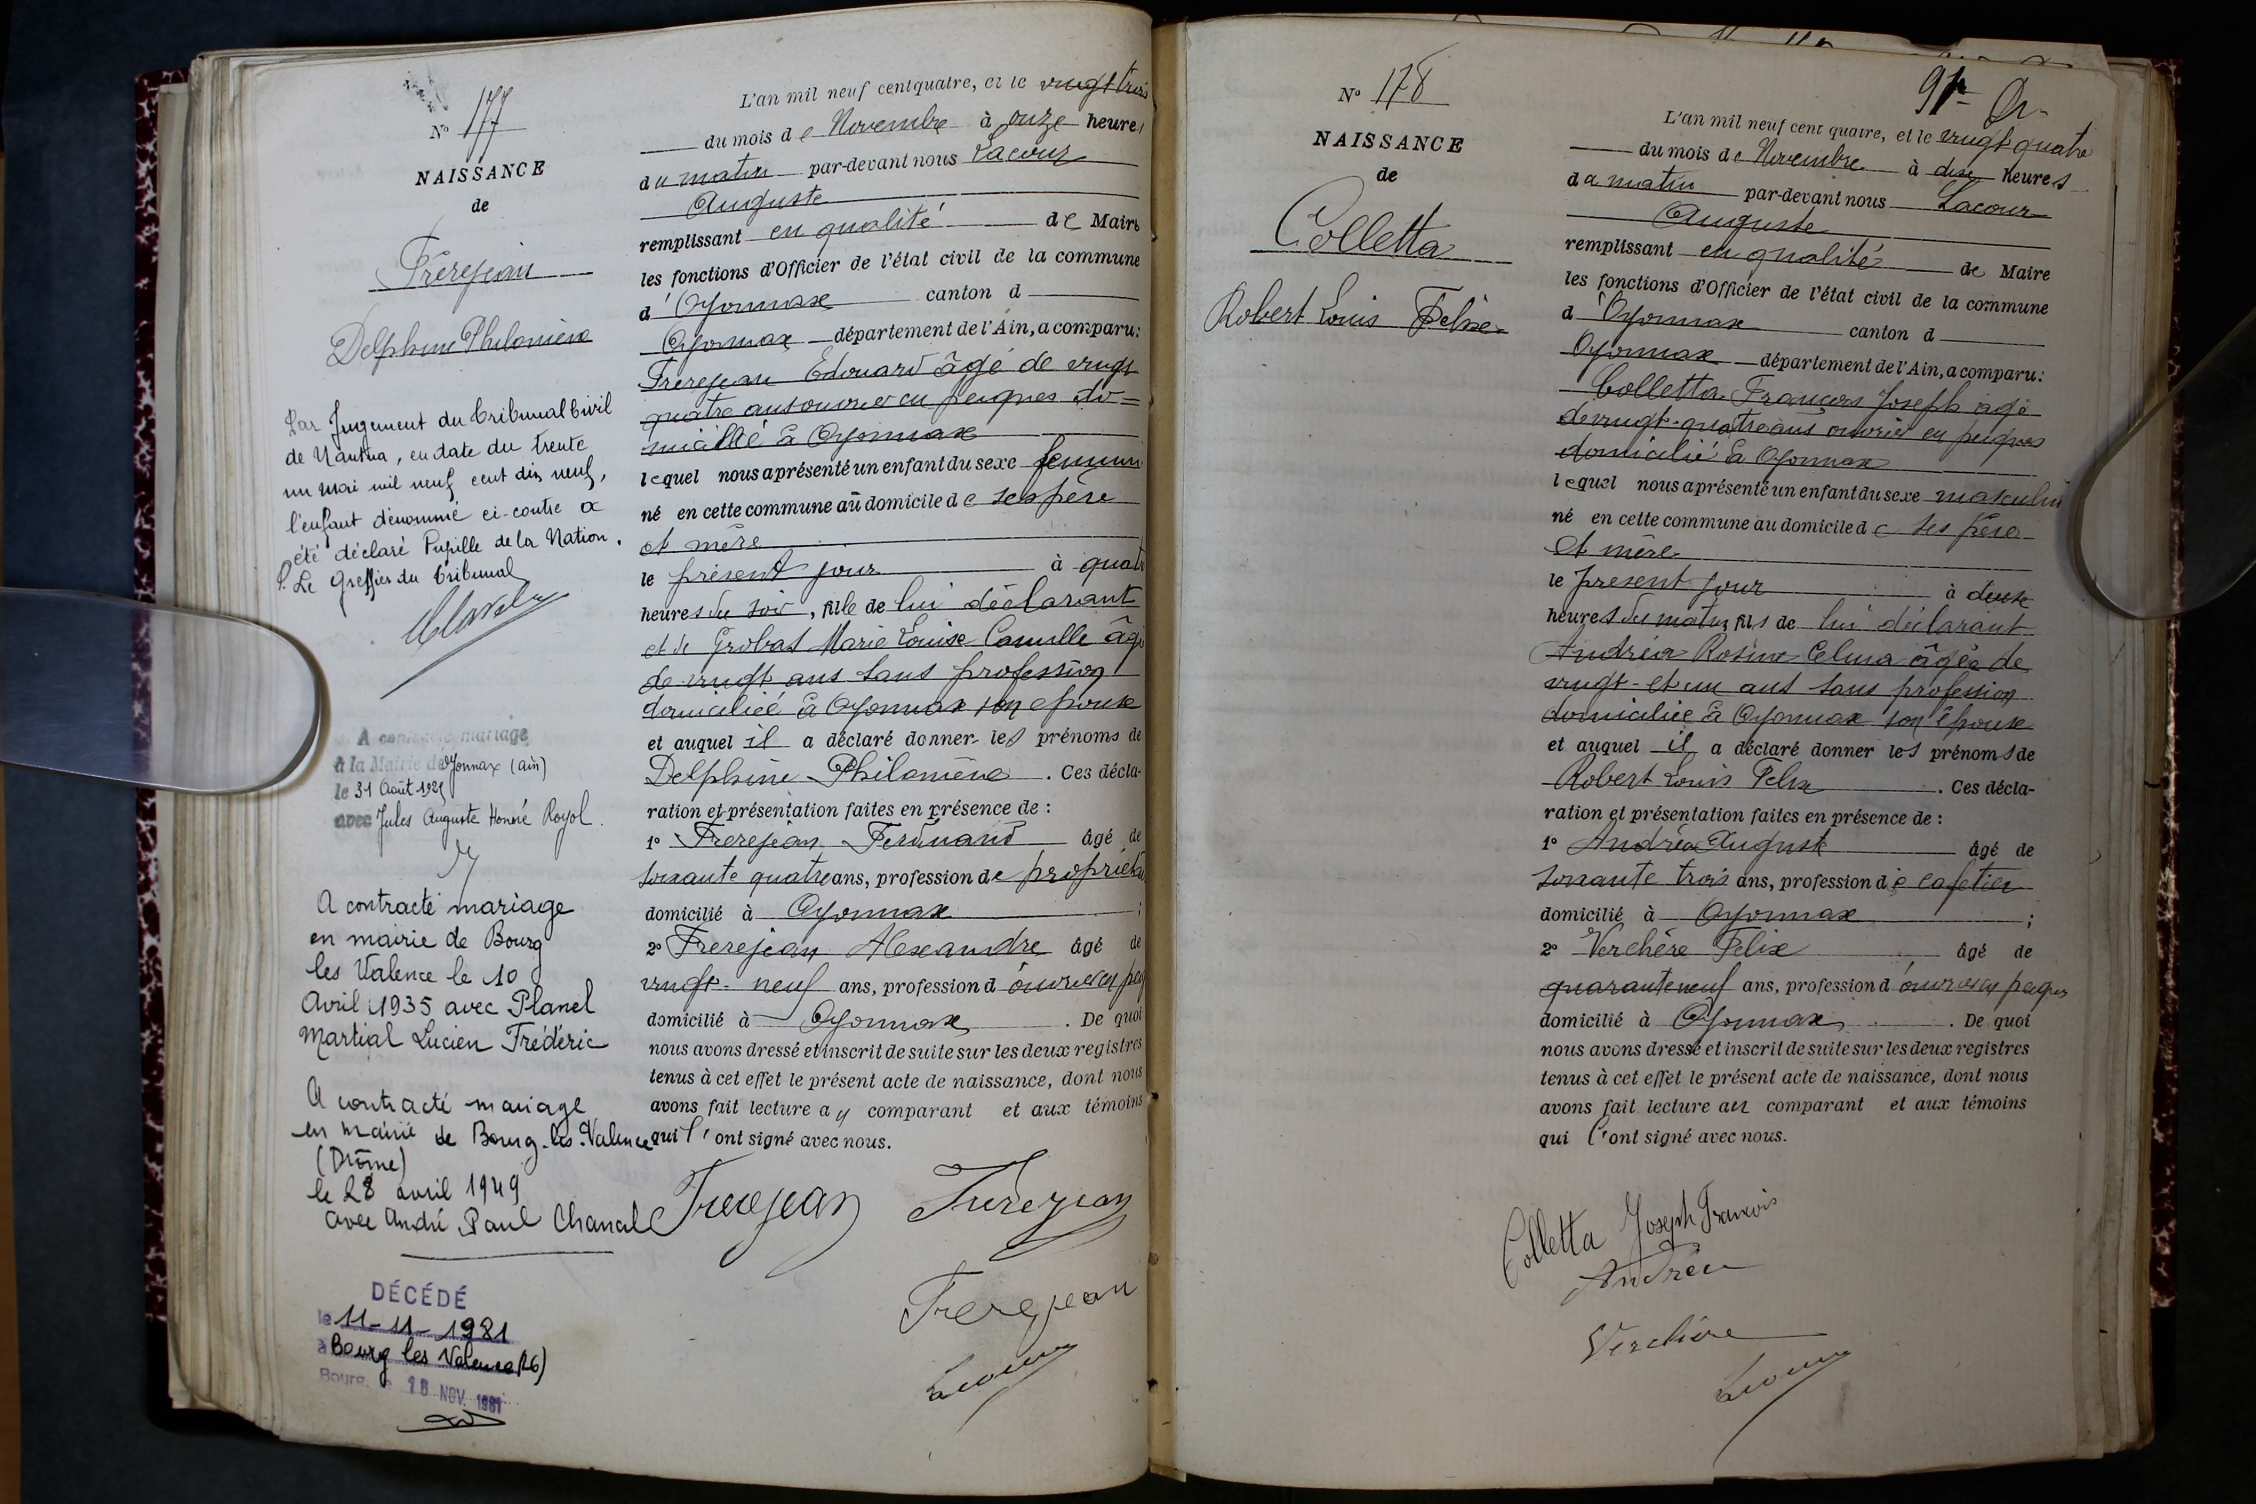 N° 177
NAISSANCE
de
Frèrejean
Delphine Philomène
Par Jugement du Tribunal Civil
de Nantua, en date du trente
un Mai mil neuf cent dix neuf,
l'enfant dénommé ci-contre a
été déclaré Pupille de la Nation.
P. Le Greffier du Tribunal
A contracté mariage
à la Mairie d'Oyonnax (ain)
le 31 Août 192
avec Jules Auguste Honoré Royol.
A contracté mariage
en mairie de Bourg
les Valence le 10
Avril 1935 avec Planel
Martial Lucien Frédéric
A contracté mariage
en mairie de Bourg-lès-Valence
(Drôme)
le 28 avril 1949
avec André Paul Chanal
DÉCÉDÉ
le 11-11-1981
à Bourg les Valence (26)
Bourg, le 18 NOV. 1981
L'an mil neuf cent quatre, et le vingt trois
du mois de Novembre à onze heures
du matin par-devant nous Lacour
Auguste
remplissant en qualité de Maire
les fonctions d'Officier de l'état civil de la commune
d'Oyonnax canton d
Oyonnax département de l'Ain, a comparu:
Frèrejean Edouard âgé de vingt
quatre ans ouvrier en peignes do=
micilié à Oyonnax
lequel nous a présenté un enfant du sexe féminin
né en cette commune au domicile de ses père
et mère
le présent jour à quatre
heures du soir, fille de lui déclarant
et de Grobas Marie Louise Camille âgée
de vingt ans sans profession
domiciliée à Oyonnax son épouse
et auquel il a déclaré donner les prénoms de
Delphine Philomène. Ces décla-
ration et présentation faites en présence de :
1° Frèrejean Ferdinand âgé de
soixante quatre ans, profession de propriétaire
domicilié à Oyonnax ;
2° Frerejean Alexandre âgé de
vingt-neuf ans, profession d'ouvrier en peig
domicilié à Oyonnax. De quoi
nous avons dressé et inscrit de suite sur les deux registres
tenus à cet effet le présent acte de naissance, dont nous
avons fait lecture au comparant et aux témoins
qui l'ont signé avec nous.
Frerejean Frèrejean
Frerejean
Lacour
N° 178
NAISSANCE
de
Colletta
Robert Louis Felix
91
L'an mil neuf cent quatre, et le vingt quatre
du mois de Novembre à dix heures
du matin par-devant nous Lacour
Auguste
remplissant en qualité de Maire
les fonctions d'Officier de l'état civil de la commune
d'Oyonnax canton d
Oyonnax département de l'Ain, a comparu:
Colletta François Joseph âgé
de vingt-quatre ans ouvrier en peignes
domicilié à Oyonnax
lequel nous a présenté un enfant du sexe masculin
né en cette commune au domicile de ses père
et mère
le présent jour à deux
heures du matin, fils de lui déclarant
Andréa Rosine Celina âgée de
vingt-et-un ans sans profession
domiciliée à Oyonnax son épouse
et auquel il a déclaré donner les prénoms de
Robert Louis Felix. Ces décla-
ration et présentation faites en présence de :
1° Andréa Auguste âgé de
soixante trois ans, profession de cafetier
domicilié à Oyonnax ;
2° Verchère Felix âgé de
quarante neuf ans, profession d'ouvrier en peignes
domicilié à Oyonnax. De quoi
nous avons dressé et inscrit de suite sur les deux registres
tenus à cet effet le présent acte de naissance, dont nous
avons fait lecture au comparant et aux témoins
qui l'ont signé avec nous.
Colletta Joseph François
Andréa
Verchère
Lacour